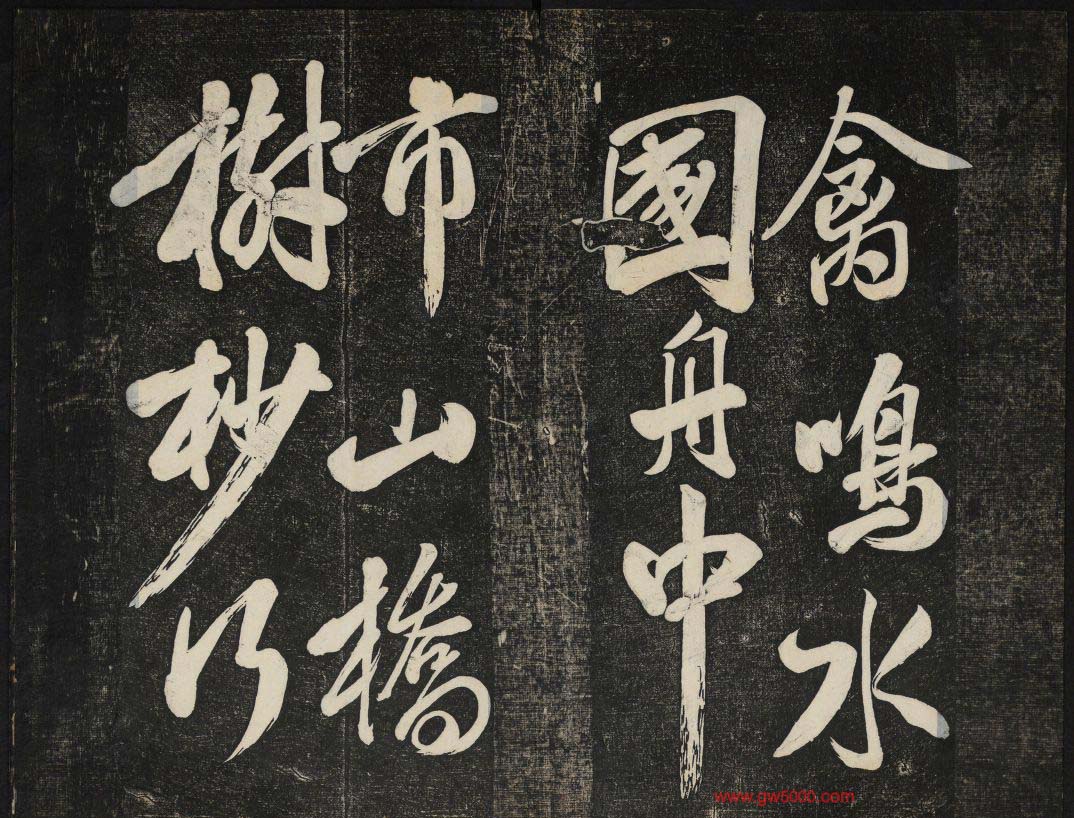 禽鳴水
國舟中
市山橋
樹杪行
www.gw5000.com